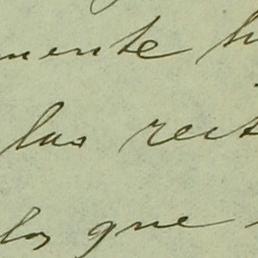 mente h
las reit
los que